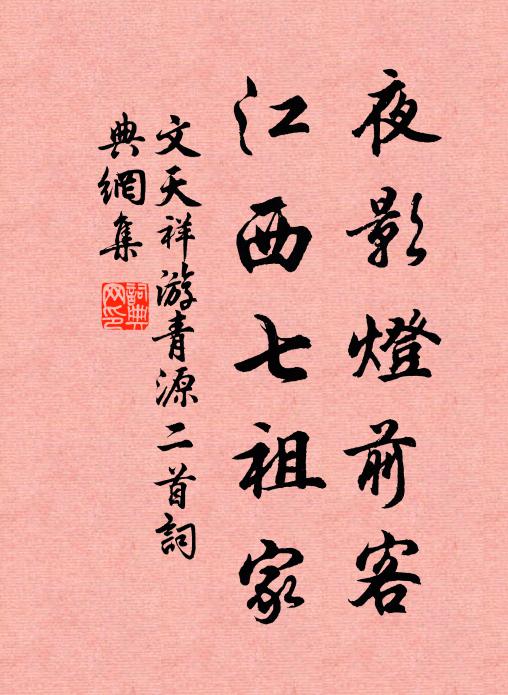 夜影燈前客
江西七祖家
文天祥游青源二首詞
典網集
詞典网印